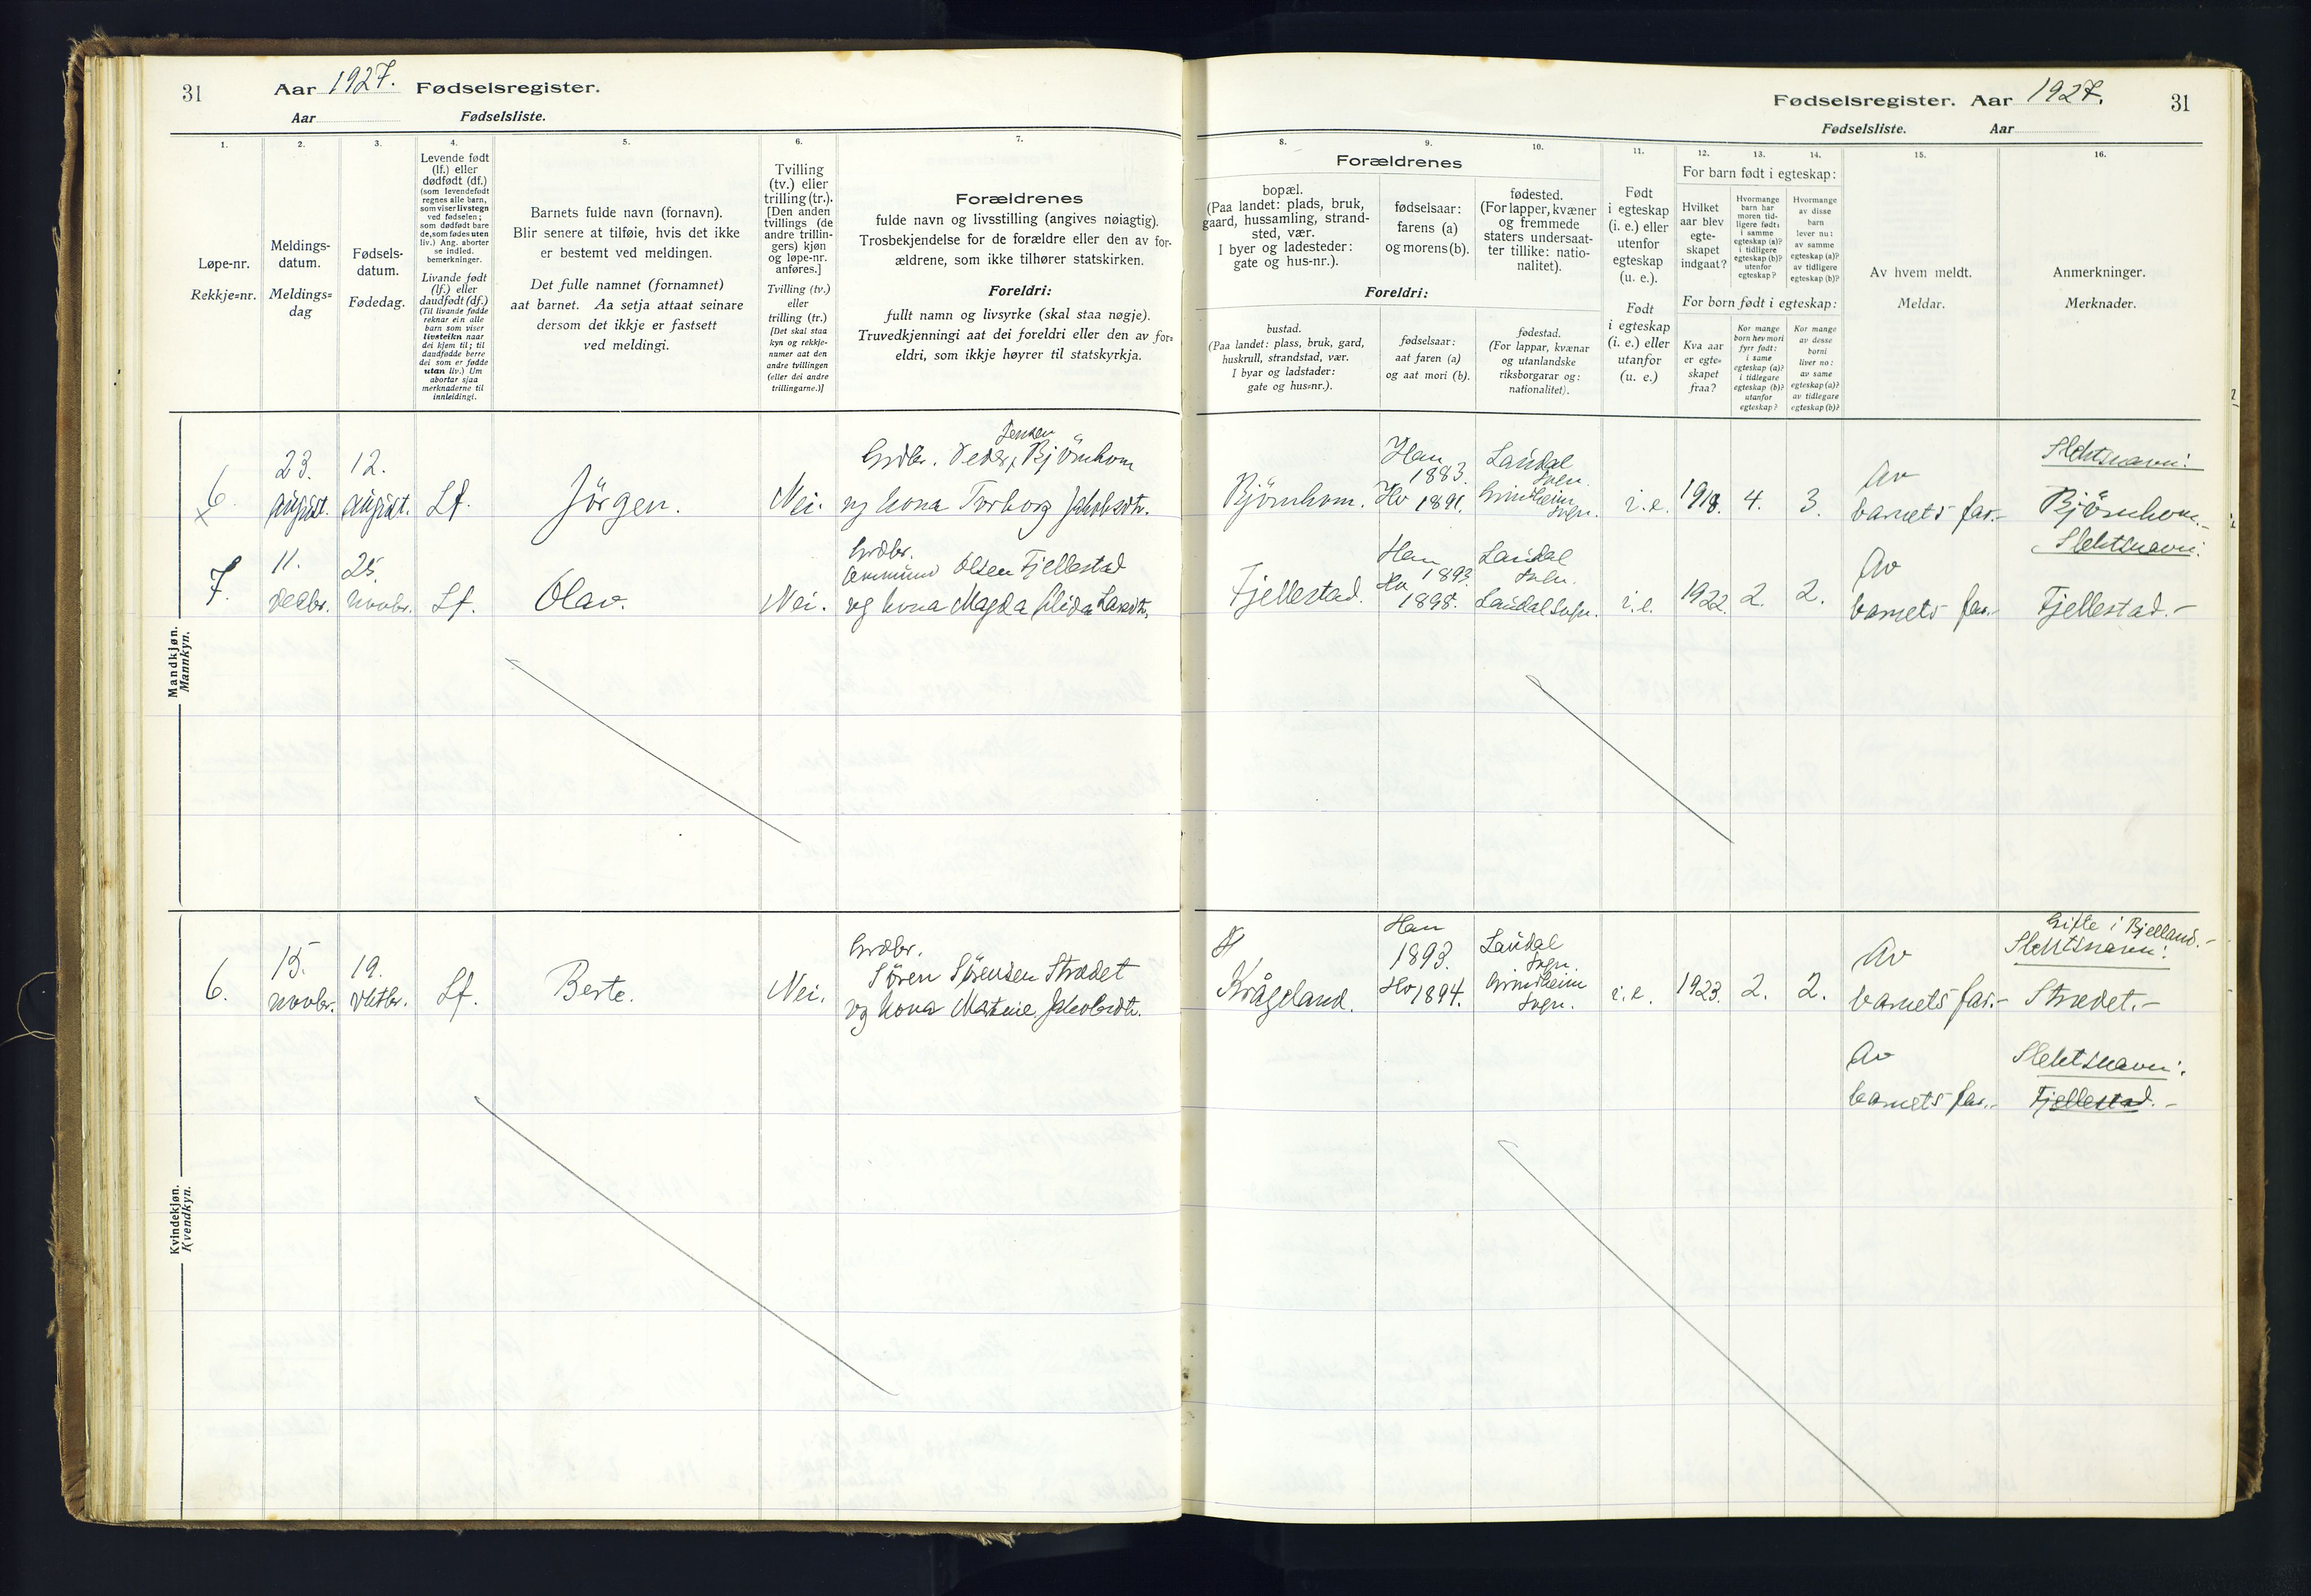 31
Aar 1927. Fødselsregister.
Aar Fødselsliste.
1.
2.
3.
4.
5.
6.
7.
Løpe-nr.
Rekkje=nr.
Meldings-
datum.
Meldings=
dag
Fødsels-
datum.
Fødedag.
Levende født
(lf.) eller
dødfødt (df.)
(som levendefødt
regnes alle barn,
som viser livstegn
ved fødselen;
som dødfødt bare
de, som fødes uten
liv.) Ang. aborter
se indled.
bemerkninger.
Livande født
(lf.) eller
daudfødt (df.)
(Til livande fødde
reknar ein alle
barn som viser
livsteikn naar
dei kjem til; til
daudfødde berre
dei som er fødde
utan liv.) Um
abortar sjaa
merknaderne til
innleidingi.
Barnets fulde navn (fornavn).
Blir senere at tilføie, hvis det ikke
er bestemt ved meldingen.
Det fulle namnet (fornamnet)
aat barnet. Aa setja attaat seinare
dersom det ikkje er fastsett
ved meldingi.
Tvilling
(tv.) eller
trilling (tr.).
[Den anden
tvillings (de
andre trillin-
gers) kjøn
og løpe-nr.
anføres.]
Tvilling (tv.)
eller
trilling (tr.)
[Det skal staa
kyn og rekkje-
numer aat den
andre tvillingen
(eller dei andre
trillingarne.)]
Forældrenes
fulde navn og livsstilling (angives nøiagtig).
Trosbekjendelse for de forældre eller den av for-
ældrene, som ikke tilhører statskirken.
Foreldri:
fullt namn og livsyrke (skal staa nøgje).
Truvedkjenningi aat dei foreldri eller den av for=
eldri, som ikkje høyrer til statskyrkja.
Mandkjøn.
Mannkyn.
6.
x
23.
august.
12.
august.
Lf.
Jörgen.
Nei.
Jensen
Grdbr. Peder Bjönhom
og kona Torborg Jakobsdtr.
7.
11.
decbr.
25.
novbr.
Lf.
Olav.
Nei.
Grdbr.
Ommund Olsen Fjellestad
og kona Magda Larsdtr.
Kvindekjøn.
Kvendkyn.
6.
15.
novbr.
19.
oktbr.
Lf.
Berte.
Nei.
Grdbr.
Sören Sörensen Strædet
og kona Martine Jakobsdtr.
Fødselsregister. Aar 1927.
31
Fødselsliste. Aar
8.
9.
10.
11.
12.
13.
14.
15.
16.
Forældrenes
bopæl.
(Paa landet: plads, bruk,
gaard, hussamling, strand-
sted, vær.
I byer og ladesteder:
gate og hus-nr.).
fødselsaar:
farens (a)
og morens (b).
fødested.
(For lapper, kvæner
og fremmede
staters undersaat-
ter tillike: natio-
nalitet).
Foreldri:
bustad.
(Paa landet: plass, bruk, gard,
huskrull, strandstad, vær.
I byar og ladstader:
gate og hus=nr.).
fødselsaar:
aat faren (a)
og aat mori (b).
fødestad.
(For lappar, kvænar
og utanlandske
riksborgarar og:
nationalitet).
Født
i egteskap
(i. e.) eller
utenfor
egteskap
(u. e.).
Født
i egteskap
(i. e.) eller
utanfor
(u. e.)
For barn født i egteskap:
Hvilket
aar blev
egte-
skapet
indgaat?
Hvormange
barn har
moren tid-
ligere født:
i samme
egteskap (a)?
i tidligere
egteskap (b)?
utenfor
egteskap?
Hvormange
av disse
barn
lever nu:
av samme
egteskap (a)?
av tidligere
egteskap (b)?
For born født i egteskap:
Kva aar
er egte=
skapet
fraa?
Kor mange
born hev mori
fyrr født:
i same
egteskap (a)?
i tidlegare
egteskap (b)?
utanfor
egteskap?
Kor mange
av desse
borni
liver no:
av same
egteskap (a)?
av tidlegare
egteskap (b)?
Av hvem meldt.
Meldar.
Anmerkninger.
Merknader.
Björnhom.
Han
1883.
Ho 1891.
Laudal
sogn.
Grindheim
sogn.
i.e.
1918.
4.
3.
Av
barnets far.-
Slektsnavn:
Björnhom.-
Fjellestad.
Han
1893.
Ho
1898.
Laudal
sogn.
Laudal sogn.
i.e.
1922.
2.
2.
Av
barnets far.-
Slektsnavn:
Fjellestad.-
Krågeland.
Han
1893.
Ho 1894.
Laudal
sogn.
Grindheim
sogn.
i.e.
1923.
2.
2.
Av
barnets far.-
Gifte i Bjelland.-
Slektsnavn:
Strædet.-
Av
barnets far.-
Slektsnavn:
Fjellestad.-